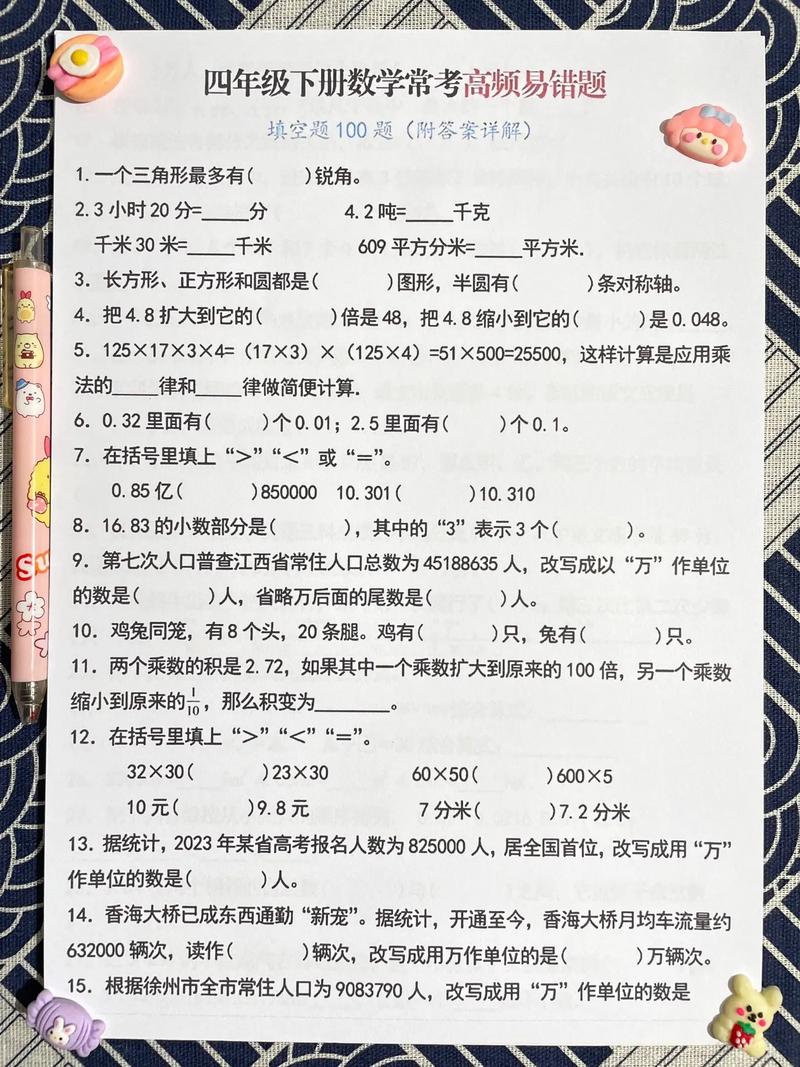 四年级下册数学常考高频易错题
填空题100题（附答案详解）
1.一个三角形最多有(     )锐角。
2.3小时20分=____分     4.2吨=____千克
千米30米=____千米     609平方分米=____平方米.
3．长方形、正方形和圆都是(     )图形，半圆有(     )条对称轴。
4．把4.8扩大到它的(     )倍是48，把4.8缩小到它的(     )是0.048。
5．125×17×3×4=（17×3）×（125×4）=51×500=25500，这样计算是应用乘
法的____律和____律做简便计算.
6．0.32里面有(     )个0.01；2.5里面有(     )个0.1。
7．在括号里填上“>”“<”或“=”。
0.85亿(     )850000  10.301(     )10.310
8．16.83的小数部分是(     )，其中的“3”表示3个(     )。
9．第七次人口普查江西省常住人口总数为45188635人，改写成以“万”作单位
的数是(     )人，省略万后面的尾数是(     )人。
10．鸡兔同笼，有8个头，20条腿。鸡有(     )只，兔有(     )只。
11．两个乘数的积是2.72，如果其中一个乘数扩大到原来的100倍，另一个乘数
缩小到原来的1/10，那么积变为______。
12．在括号里填上“>”“<”“=”。
32×30(     )23×30     60×50(     )600×5
10元(     )9.8元     7分米(     )7.2分米
13．据统计，2023年某省高考报名人数为825000人，居全国首位，改写成用“万”
作单位的数是(     )人。
14．香海大桥已成东西通勤“新宠”。据统计，开通至今，香海大桥月均车流量约
632000辆次，读作(     )辆次，改写成用万作单位的是(     )万辆次。
15．根据徐州市全市常住人口为9083790人，改写成用“万”作单位的数是